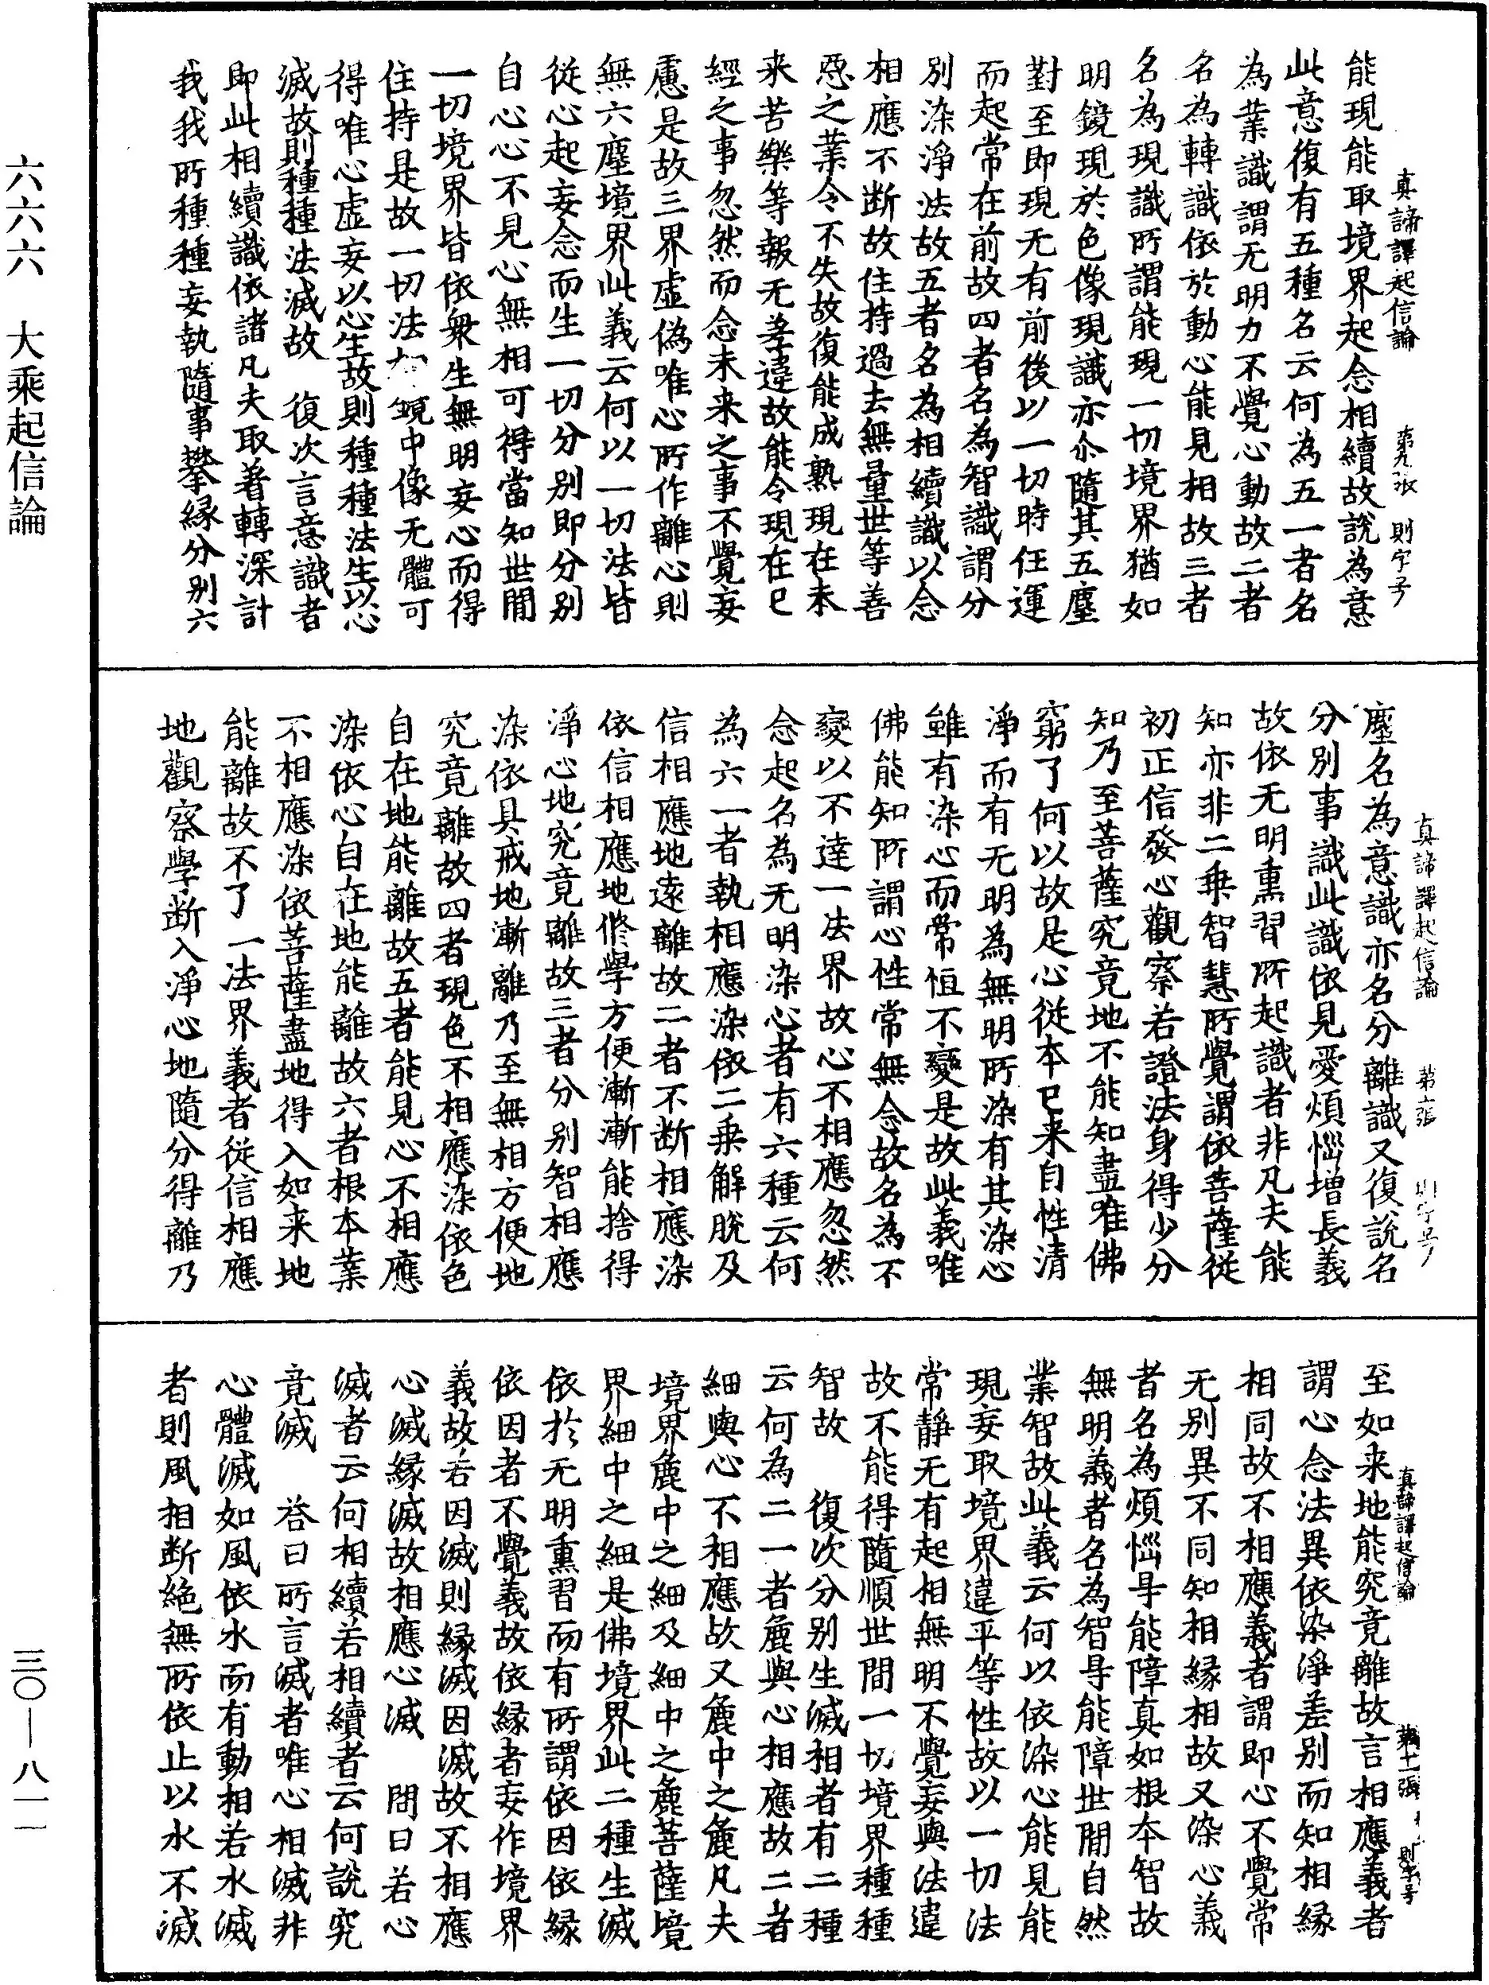 能現能取境界起念相續故說為意
此意復有五種名云何為五一者名
為業識謂无明力不覺心動故二者
名為轉識依於動心能見相故三者
名為現識所謂能現一切境界猶如
明鏡現於色像現識亦尒隨其五塵
對至即現无有前後以一切時任運
而起常在前故四者名為智識謂分
別染淨法故五者名為相續識以念
相應不断故住持過去無量世等善
惡之業令不失故復能成熟現在未
来苦樂等報无差違故能令現在已
經之事忽然而念未来之事不覺妄
慮是故三界虛偽唯心所作離心則
無六塵境界此義云何以一切法皆
從心起妄念而生一切分別即分別
自心心不見心無相可得當知世間
一切境界皆依衆生無明妄心而得
住持是故一切法如鏡中像无體可
得唯心虛妄以心生故則種種法生以心
滅故則種種法滅故　復次言意識者
即此相續識依諸凡夫取著轉深計
我我所種種妄執隨事攀緣分別六
真諦譯起信論　第九張　則字号
塵名為意識亦名分離識又復說名
分別事識此識依見愛煩惱增長義
故依无明熏習所起識者非凡夫能
知亦非二乗智慧所覺謂依菩薩從
初正信發心觀察若證法身得少分
知乃至菩薩究竟地不能知盡唯佛
窮了何以故是心從本已来自性清
淨而有无明為無明所染有其染心
雖有染心而常恒不變是故此義唯
佛能知所謂心性常無念故名為不
變以不達一法界故心不相應忽然
念起名為无明染心者有六種云何
為六一者執相應染依二乗解脫及
信相應地遠離故二者不断相應染
依信相應地修學方便漸漸能捨得
淨心地究竟離故三者分別智相應
染依具戒地漸離乃至無相方便地
究竟離故四者現色不相應染依色
自在地能離故五者能見心不相應
染依心自在地能離故六者根本業
不相應染依菩薩盡地得入如来地
能離故不了一法界義者從信相應
地觀察學断入淨心地隨分得離乃
真諦譯起信論　第十張
至如来地能究竟離故言相應義者
謂心念法異依染淨差別而知相緣
相同故不相應義者謂即心不覺常
无別異不同知相緣相故又染心義
者名為煩惱㝵能障真如根本智故
無明義者名為智㝵能障世間自然
業智故此義云何以依染心能見能
現妄取境界違平等性故以一切法
常靜无有起相無明不覺妄與法違
故不能得隨順世間一切境界種種
智故　復次分別生滅相者有二種
云何為二一者麁與心相應故二者
細與心不相應故又麁中之麁凡夫
境界麁中之細及細中之麁菩薩境
界細中之細是佛境界此二種生滅
依於无明熏習而有所謂依因依緣
依因者不覺義故依緣者妄作境界
義故若因滅則緣滅因滅故不相應
心滅緣滅故相應心滅　問曰若心
滅者云何相續若相續者云何說究
竟滅　荅曰所言滅者唯心相滅非
心體滅如風依水而有動相若水滅
者則風相断絶無所依止以水不滅
真諦譯起信論　第十一張　則字号
六六六　大乘起信論
三〇—八一一